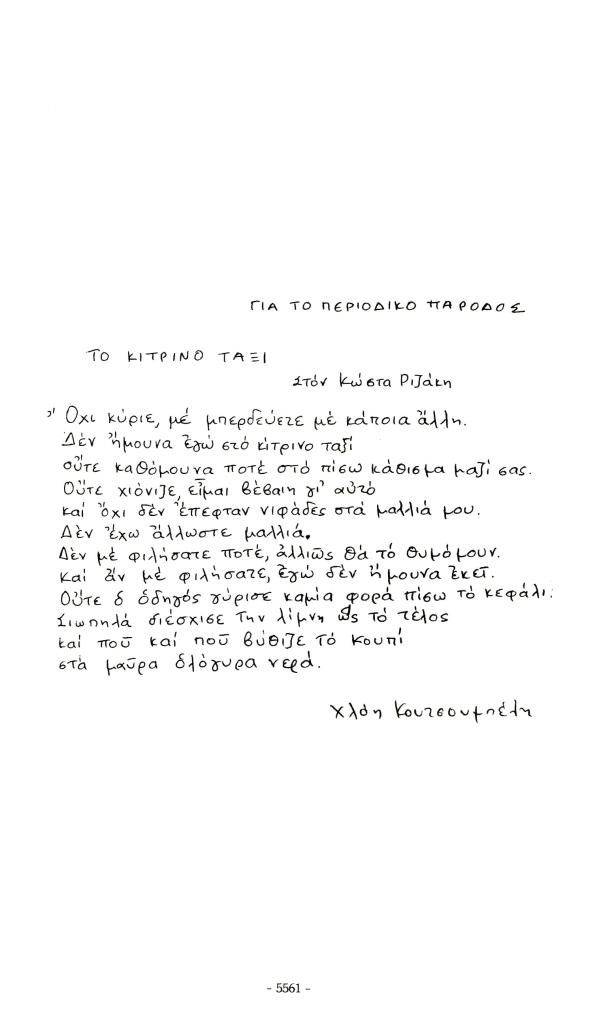 ΓΙΑ ΤΟ ΠΕΡΙΟΔΙΚΟ ΠΑΡΟΔΟΣ
ΤΟ ΚΙΤΡΙΝΟ ΤΑΞΙ
Στόν Κώστα Ριζάκη
Ὄχι κύριε, μέ μπερδεύετε μέ κάποια ἄλλη.
Δέν ἤμουνα ἐγώ στό κίτρινο ταξί
οὔτε καθόμουνα ποτέ στό πίσω κάθισμα μαζί σας.
Οὔτε χιόνιζε, εἶμαι βέβαιη γι' αὐτό
καί ὄχι δέν ἔπεφταν νιφάδες στά μαλλιά μου.
Δέν ἔχω ἄλλωστε μαλλιά.
Δέν μέ φιλήσατε ποτέ, ἀλλιῶς θά τό θυμόμουν.
Καί ἄν μέ φιλήσατε, ἐγώ δέν ἤμουνα ἐκεῖ.
Οὔτε ὁ ὁδηγός γύρισε καμία φορά πίσω τό κεφάλι.
Σιωπηλά διέσχισε τήν λίμνη ὥς τό τέλος
καί ποῦ καί ποῦ βύθιζε τό κουπί
στά μαῦρα ὁλόγυρα νερά.
Χλόη Κουτσουμπέλη
- 5561 -